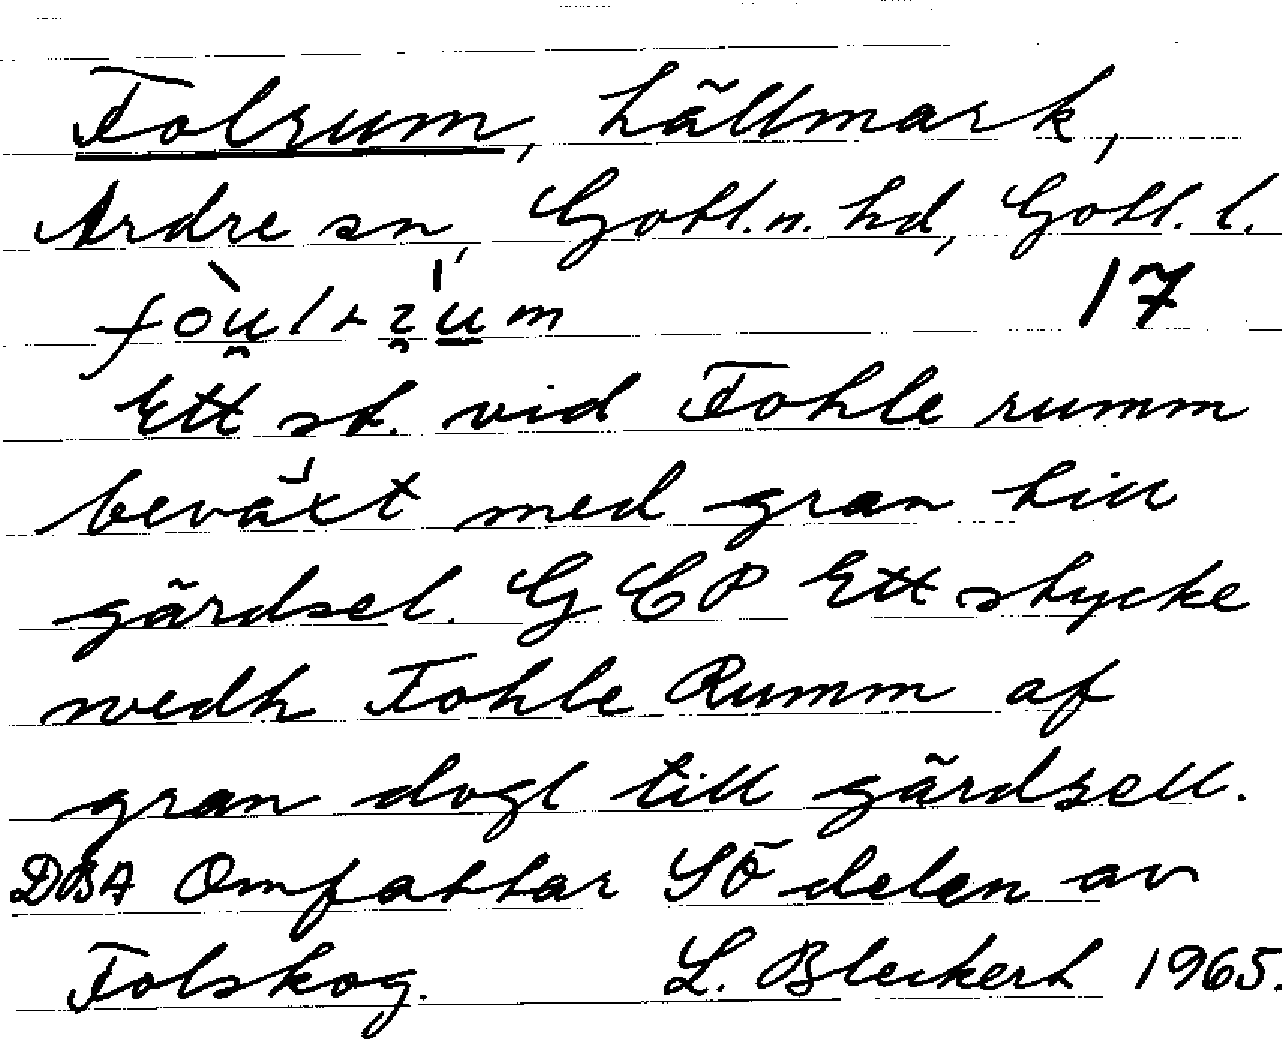 Folrum, hällmark,
Ardre sn, Gotl. n. hd, Gotl. l.
17
Ett st. vid Fohle rumm
beväxt med gran till
gärdsel. GCP Ett stycke
wedh Fohle Rumm af
gran dogl till gärdsell.
DBA Omfattar SÖ delen av
Folskog. L. Bleckert 1965.